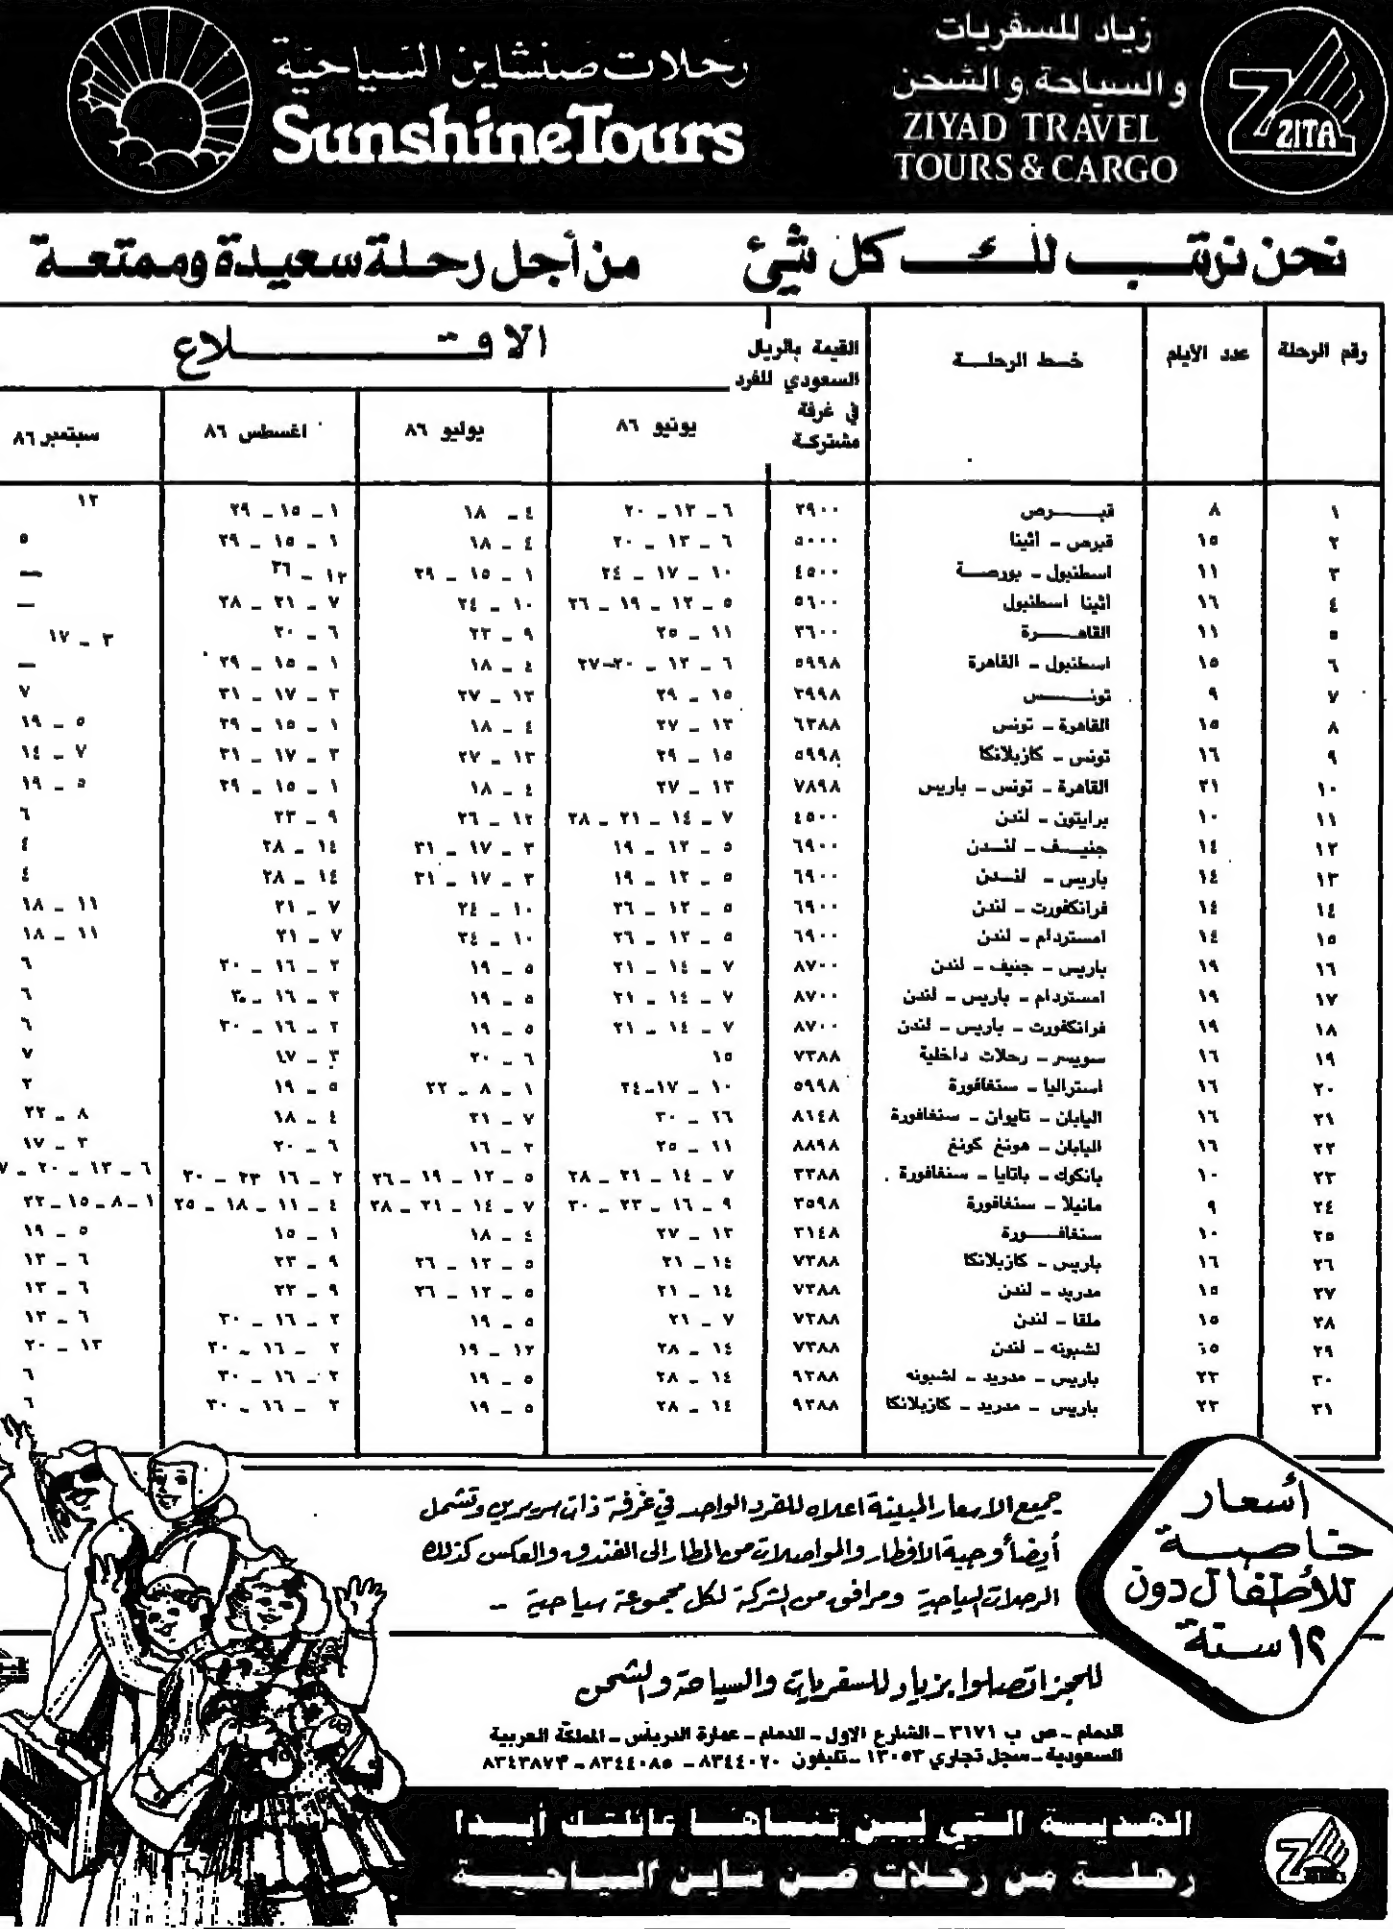 زياد للسفريات
والسياحة والشحن
ZIYAD TRAVEL
TOURS & CARGO
ZITA
رحلات صنشاين السياحية
SunshineTours
نحن نرتب لك كل شئ من أجل رحلة سعيدة وممتعة
رقم الرحلة عدد الأيام خط الرحلة القيمة بالريال السعودي للفرد في غرفة مشتركة الاقلاع
يونيو ٨٦ يوليو ٨٦ اغسطس ٨٦ سبتمبر ٨٦
١ ٨ قبرص ٢٩٠٠ ٦ - ١٣ - ٢٠ ٤ - ١٨ ١ - ١٥ - ٢٩ ١٢
٢ ١٥ قبرص - أثينا ٥٠٠٠ ٦ - ١٣ - ٢٠ ٤ - ١٨ ١ - ١٥ - ٢٩ ٥
٣ ١١ اسطنبول - بورصة ٤٥٠٠ ١٠ - ١٧ - ٢٤ ١ - ١٥ - ٢٩ ١٢ - ٢٦ —
٤ ١٦ أثينا اسطنبول ٥٦٠٠ ٥ - ١٢ - ١٩ - ٢٦ ١٠ - ٢٤ ٧ - ٢١ - ٢٨ —
٥ ١١ القاهرة ٣٦٠٠ ١١ - ٢٥ ٩ - ٢٣ ٦ - ٢٠ ٣ - ١٧
٦ ١٥ اسطنبول - القاهرة ٥٩٩٨ ٦ - ١٣ - ٢٠-٢٧ ٤ - ١٨ ١ - ١٥ - ٢٩ —
٧ ٩ تونس ٣٩٩٨ ١٥ - ٢٩ ١٣ - ٢٧ ٣ - ١٧ - ٣١ ٧
٨ ١٥ القاهرة - تونس ٦٣٨٨ ١٣ - ٢٧ ٤ - ١٨ ١ - ١٥ - ٢٩ ٥ - ١٩
٩ ١٦ تونس - كازبلانكا ٥٩٩٨ ١٥ - ٢٩ ١٣ - ٢٧ ٣ - ١٧ - ٣١ ٧ - ١٤
١٠ ٢١ القاهرة - تونس - باريس ٧٨٩٨ ١٣ - ٢٧ ٤ - ١٨ ١ - ١٥ - ٢٩ ٥ - ١٩
١١ ١٠ برايتون - لندن ٤٥٠٠ ٧ - ١٤ - ٢١ - ٢٨ ١٢ - ٢٦ ٩ - ٢٣ ٦
١٢ ١٤ جنيف - لندن ٦٩٠٠ ٥ - ١٢ - ١٩ ٣ - ١٧ - ٣١ ١٤ - ٢٨ ٤
١٣ ١٤ باريس - لندن ٦٩٠٠ ٥ - ١٢ - ١٩ ٣ - ١٧ - ٣١ ١٤ - ٢٨ ٤
١٤ ١٤ فرانكفورت - لندن ٦٩٠٠ ٥ - ١٢ - ٢٦ ١٠ - ٢٤ ٧ - ٢١ ١١ - ١٨
١٥ ١٤ امستردام - لندن ٦٩٠٠ ٥ - ١٢ - ٢٦ ١٠ - ٢٤ ٧ - ٢١ ١١ - ١٨
١٦ ١٩ باريس - جنيف - لندن ٨٧٠٠ ٧ - ١٤ - ٢١ ٥ - ١٩ ٢ - ١٦ - ٣٠ ٦
١٧ ١٩ امستردام - باريس - لندن ٨٧٠٠ ٧ - ١٤ - ٢١ ٥ - ١٩ ٢ - ١٦ - ٣٠ ٦
١٨ ١٩ فرانكفورت - باريس - لندن ٨٧٠٠ ٧ - ١٤ - ٢١ ٥ - ١٩ ٢ - ١٦ - ٣٠ ٦
١٩ ١٦ سويسر - رحلات داخلية ٧٣٨٨ ١٥ ٦ - ٢٠ ٣ - ١٧ ٧
٢٠ ١٦ استراليا - سنغافورة ٥٩٩٨ ١٠ - ١٧-٢٤ ١ - ٨ - ٢٢ ٥ - ١٩ ٢
٢١ ١٦ اليابان - تايوان - سنغافورة ٨٦٤٨ ١٦ - ٣٠ ٧ - ٢١ ٤ - ١٨ ٨ - ٢٢
٢٢ ١٦ اليابان - هونغ كونغ ٨٨٩٨ ١١ - ٢٥ ٢ - ١٦ ٦ - ٢٠ ٣ - ١٧
٢٣ ١٠ بانكوك - باتايا - سنغافورة ٣٣٨٨ ٧ - ١٤ - ٢١ - ٢٨ ٥ - ١٢ - ١٩ - ٢٦ ٢ - ١٦ ٢٣ - ٣٠ ٦ - ١٣ - ٢٠ - ٧
٢٤ ٩ مانيلا - سنغافورة ٣٥٩٨ ٩ - ١٦ - ٢٣ - ٣٠ ٧ - ١٤ - ٢١ - ٢٨ ٤ - ١١ - ١٨ - ٢٥ ١ - ٨ - ١٥ - ٢٢
٢٥ ١٠ سنغافورة ٣١٤٨ ١٣ - ٢٧ ٤ - ١٨ ١ - ١٥ ٥ - ١٩
٢٦ ١٦ باريس - كازبلانكا ٧٣٨٨ ١٤ - ٢١ ٥ - ١٢ - ٢٦ ٩ - ٢٣ ٦ - ١٣
٢٧ ١٥ مدريد - لندن ٧٣٨٨ ١٤ - ٢١ ٥ - ١٢ - ٢٦ ٩ - ٢٣ ٦ - ١٣
٢٨ ١٥ ملقا - لندن ٧٣٨٨ ٧ - ٢١ ٥ - ١٩ ٢ - ١٦ - ٣٠ ٦ - ١٣
٢٩ ١٥ لشبونه - لندن ٧٣٨٨ ١٤ - ٢٨ ١٢ - ١٩ ٢ - ١٦ - ٣٠ ١٣ - ٢٠
٣٠ ٢٣ باريس - مدريد - لشبونه ٩٣٨٨ ١٤ - ٢٨ ٥ - ١٩ ٢ - ١٦ - ٣٠ ٦
٣١ ٢٣ باريس - مدريد - كازبلانكا ٩٣٨٨ ١٤ - ٢٨ ٥ - ١٩ ٢ - ١٦ - ٣٠ ٦
أسعار
خاصة
للأطفال دون
١٢ سنة
جميع الاسعار المبينة اعلاه للفرد الواحد في غرفة ذات سريرين وتشمل
أيضاً وجبة الافطار والمواصلات من المطار الى الفندق والعكس كذلك
الرحلات السياحية ومرافق من الشركة لكل مجموعة سياحية --
للحجز اتصلوا بزياد للسفريات والسياحة والشحن
الدمام - ص ب ٣١٧١ - الشارع الاول - الدمام - عمارة الدريس - المملكة العربية
السعودية - سجل تجاري ١٣٠٥٣ - تليفون ٨٣٤٤٠٢٠ - ٨٣٤٤٠٨٥ - ٨٣٤٣٨٧٣
الهدية التي لن تنساها عائلتك أبدا
رحلة من رحلات صن شاين السياحية